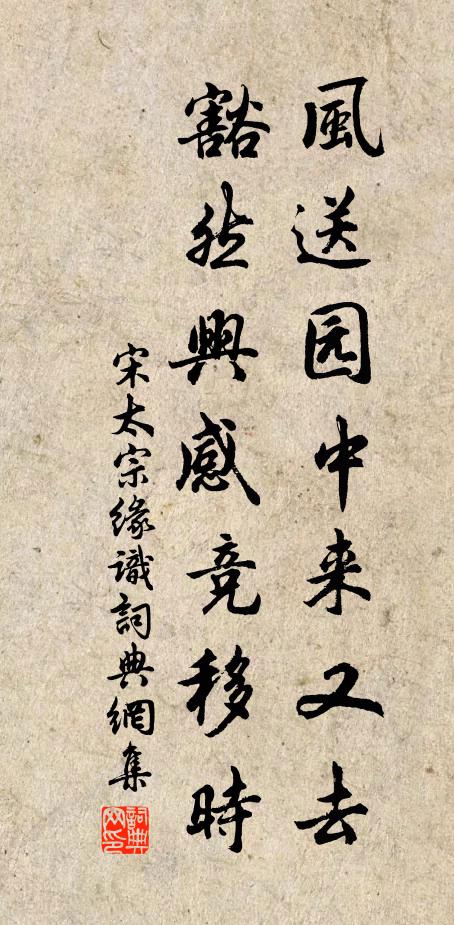 風送园中来又去
豁然興感竞移時
宋太宗缘識詞典網集
詞典网印